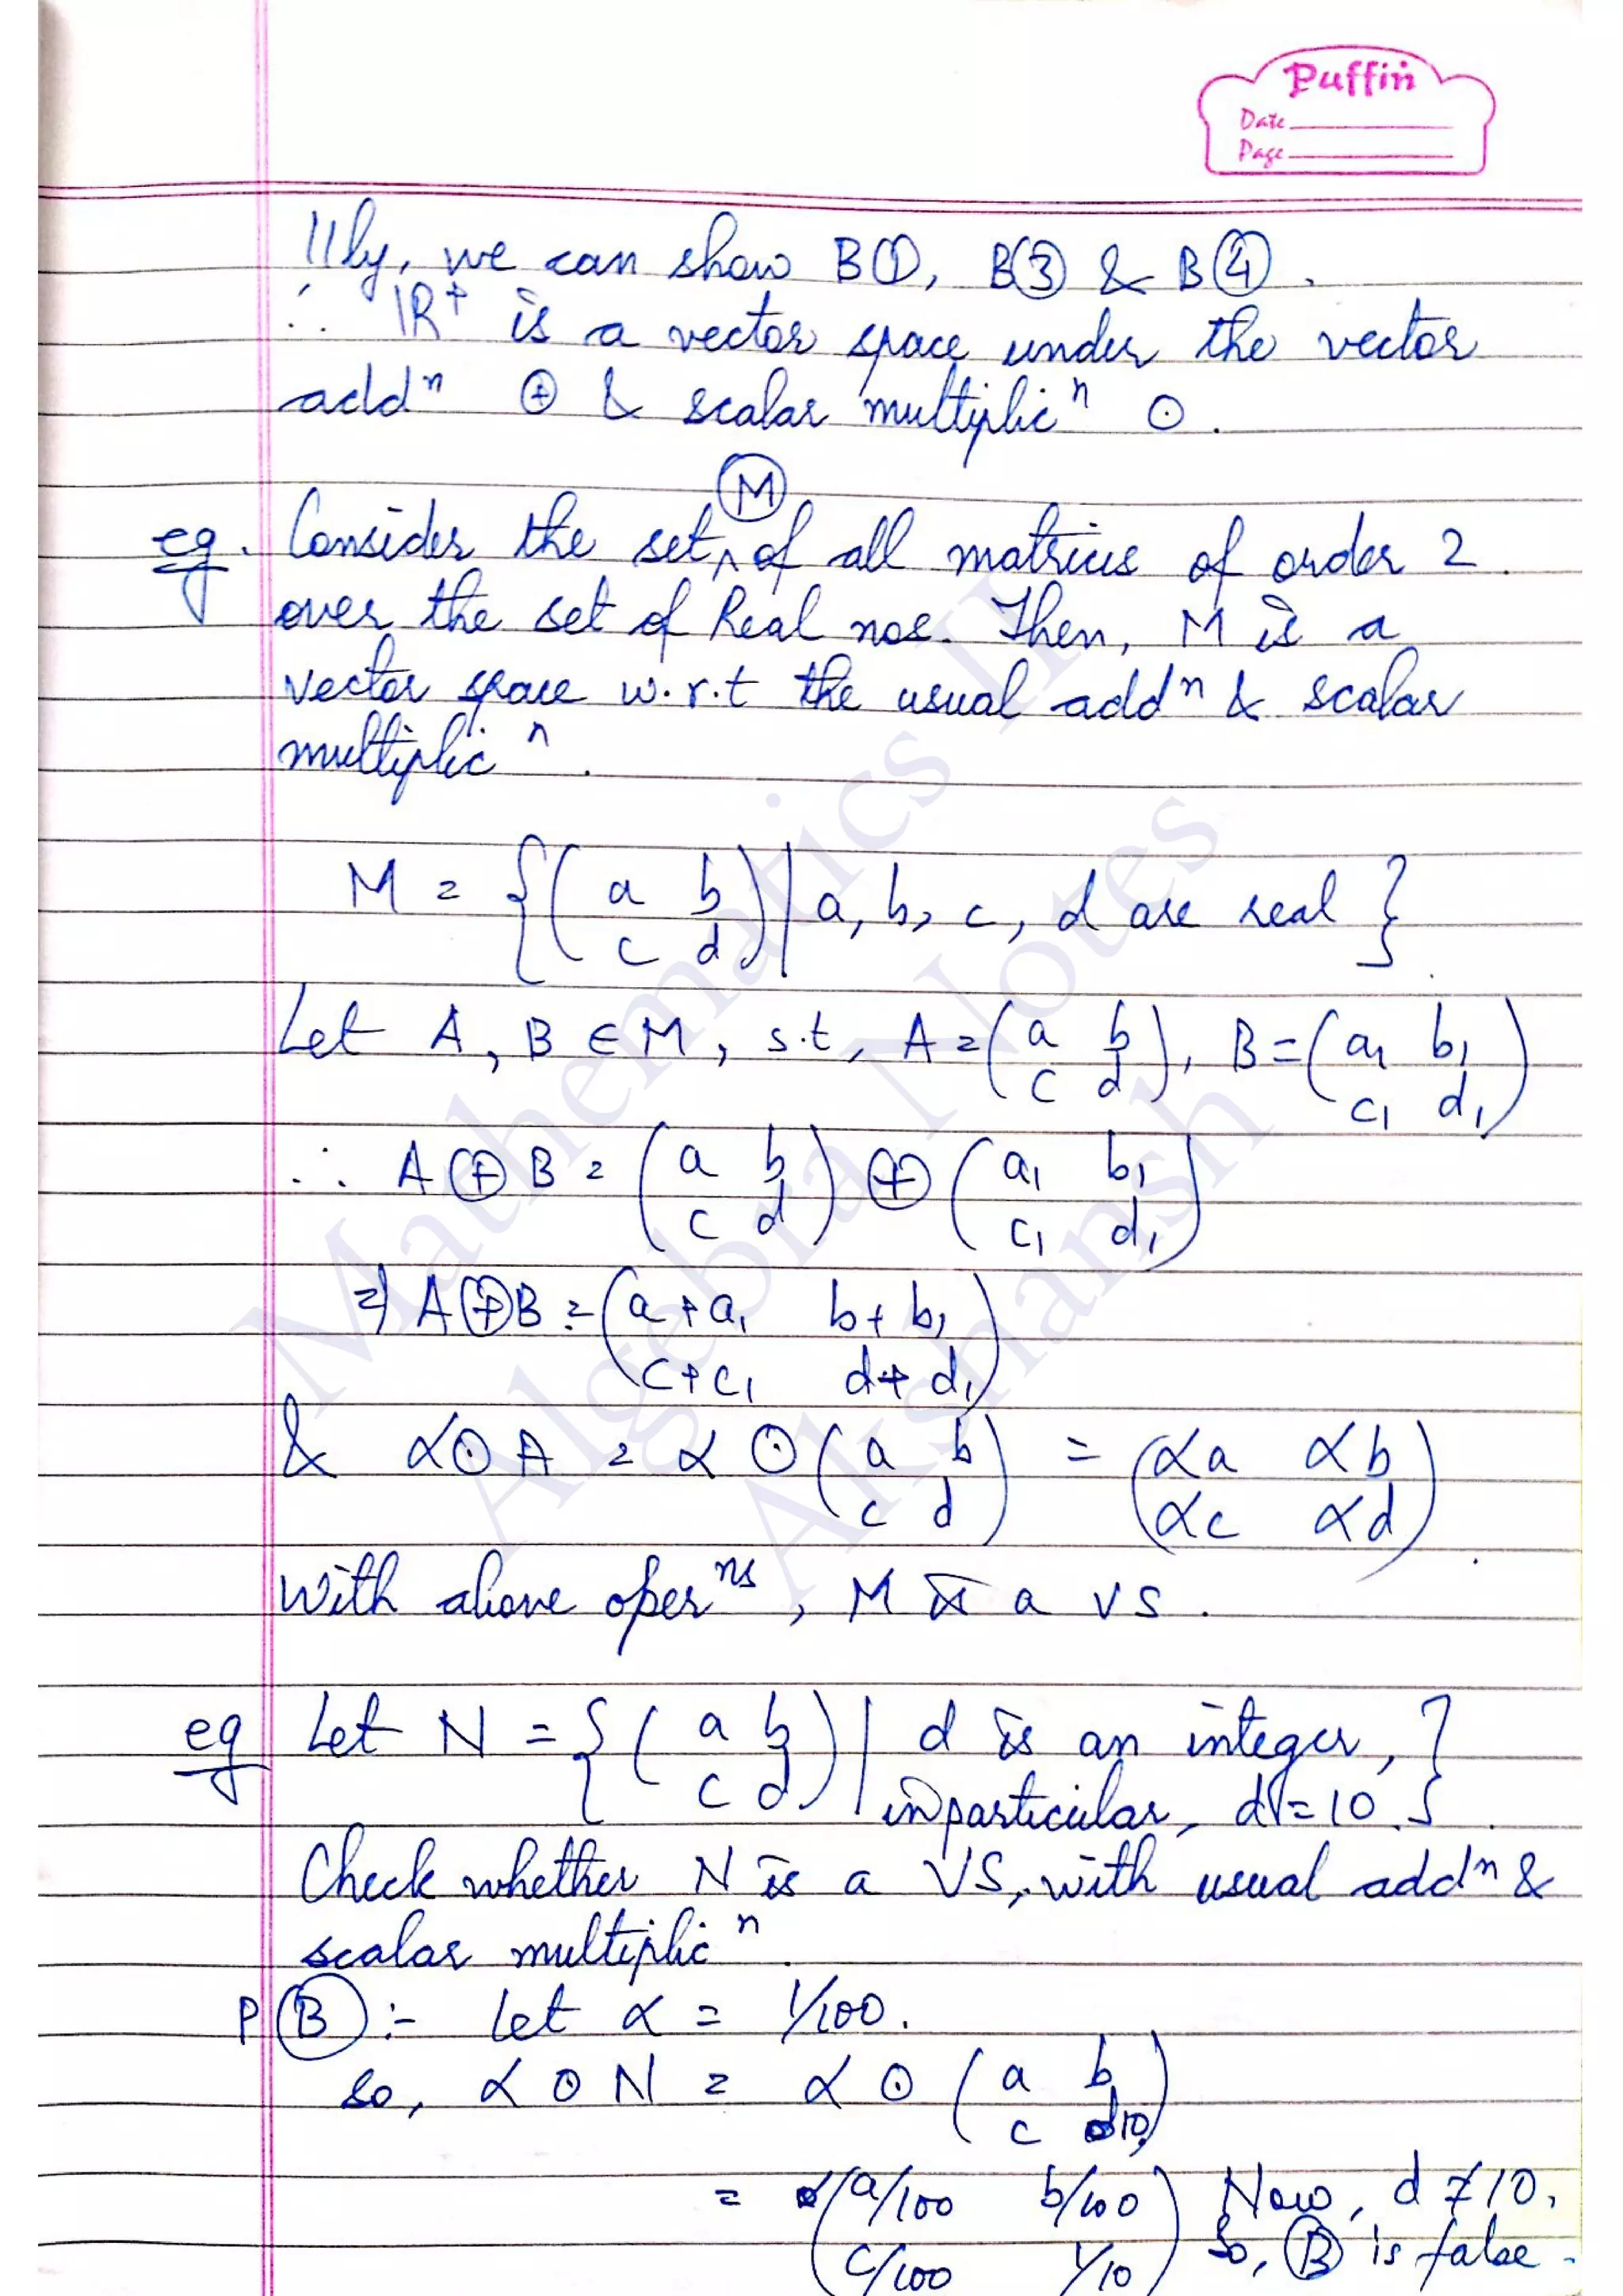 Puffin
Date
Page
llly, we can show B①, B③ & B④.
∴ IR⁺ is a vector space under the vector
addⁿ ⊕ & scalar multiplicⁿ ⊙.
Ⓜ
eg. Consider the set ∧ of all matrices of order 2
over the set of Real nos. Then, M is a
vector space w.r.t the usual addⁿ & scalar
multiplicⁿ.
M = { ( a b
c d ) | a, b, c, d are real }
Let A, B ∈ M, s.t, A = ( a b
c d ), B = ( a₁ b₁
c₁ d₁ )
∴ A ⊕ B = ( a b
c d ) ⊕ ( a₁ b₁
c₁ d₁ )
⇒ A ⊕ B = ( a + a₁ b + b₁
c + c₁ d + d₁ )
& α ⊙ A = α ⊙ ( a b
c d ) = ( αa αb
αc αd )
With above operⁿˢ, M is a VS.
eg Let N = { ( a b
c d ) | d is an integer,
in particular, d = 10. }
Check whether N is a VS, with usual addⁿ &
scalar multiplicⁿ.
P Ⓑ :- Let α = 1/100.
so, α ⊙ N = α ⊙ ( a b
c 10 )
= ( a/100 b/100
c/100 1/10 ) Now, d ≠ 10.
So, Ⓑ is false.
Mathematics II
Algebra Notes
Akshansh